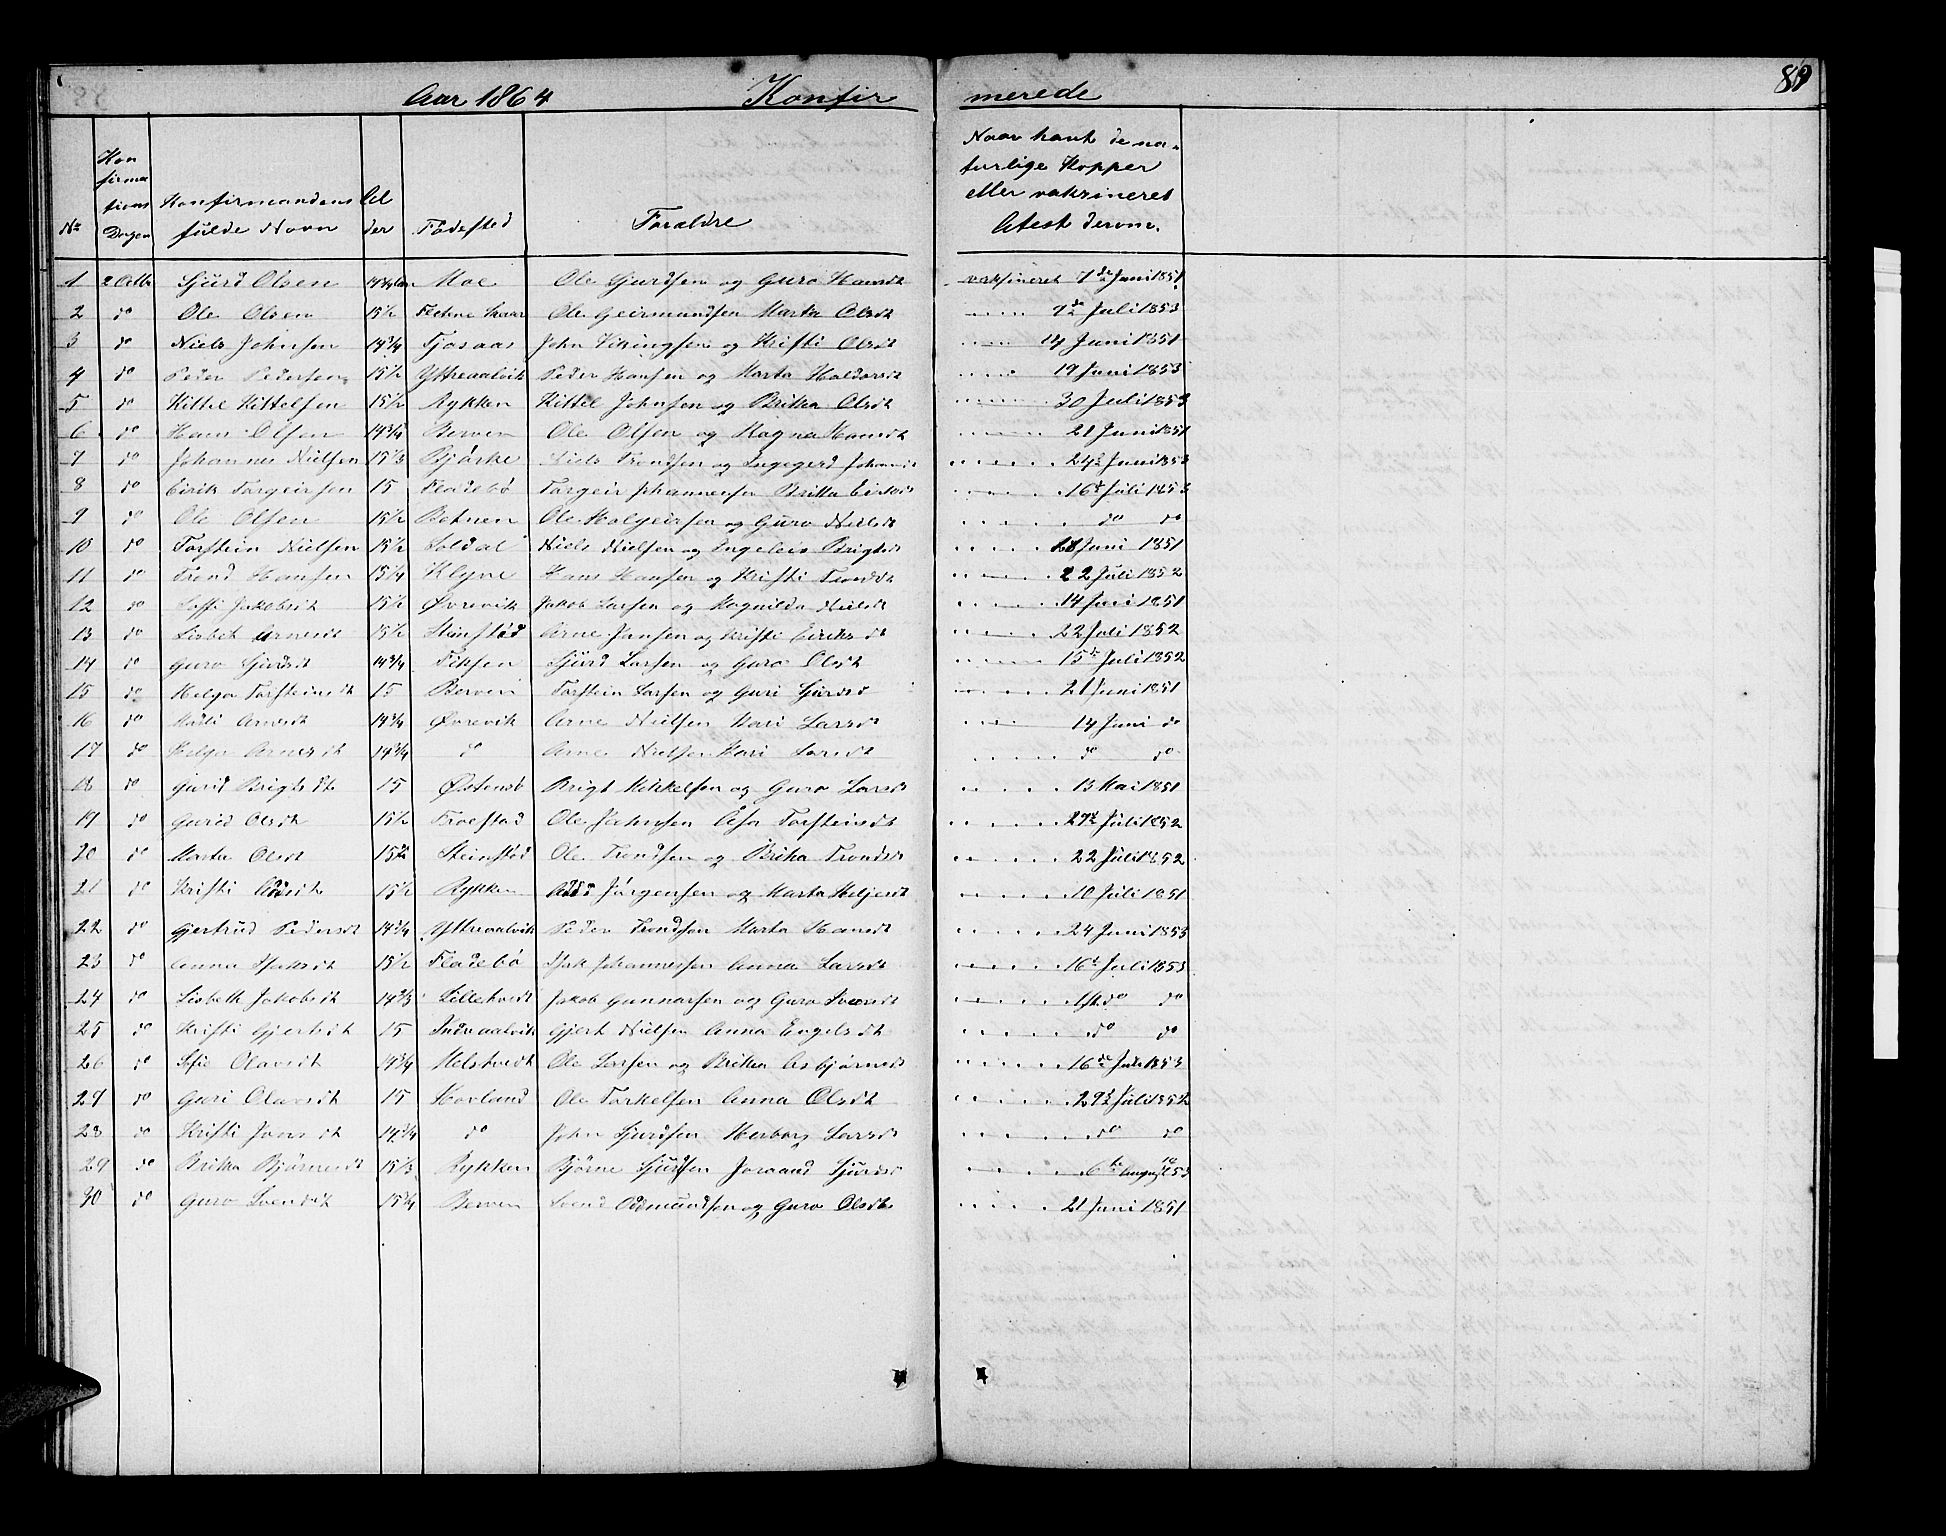 Aar 1864 Konfir merede 89
Nº Kon firma tions Dagen Konfirmandens fulde Navn Al der Födested Foraldre Naar havt de na- turlige Kopper eller vaksineret Atest derom.
1 2 Octbr Sjurd Olsen 14 3/4 Moe Ole Sjurdsen og Guro Hansdt vaksineret 7de Juni 1851
2 do Ole Olsen 15 1/2 Ole Geirmundsen Marta Olsdt 9de Juli 1853
3 do Niels Johnsen 14 3/4 Tjosaas John Vikingsen og Kristi Olsdt 14 Juni 1851
4 do Peder Pedersen 15 1/2 Yttreaalvik Peder Hansen og Marta Haldorsdt 19 Juni 1853
5 do Kittel Kittelsen 15 1/2 Rykken Kittel Johnsen og Britha Olsdt 30 Juli 1853
6 do Hans Olsen 14 3/4 Berven Ole Olsen og Ragna Hansdt 21 Juni 1851
7 do Johannes Nielsen 15 1/3 Bjørke Niels Trondsen og Ingegerd Johannsdt 24de Juni 1853
8 do Eirik Torgeirsen 15 Fladebö Torgeir Johannensen Britha Eiriksdt 16de Juli 1853
9 do Ole Olsen 15 1/2 Botnen Ole Holgeirsen og Guro Nielsdt do do
10 do Torstein Nielsen 15 1/2 Soldal Niels Nielsen og Engeleiv Brigtsdt 28 Juni 1851
11 do Trond Hansen 15 1/4 Klyve Hans Hansen og Kristi Trondsdt 22 Juli 1852
12 do Jakobsdt 15 1/2 Øvrevik Jakob Larsen og Ragnilda Nielsdt 14 Juni 1851
13 do Lisbet Arnesdt 15 1/2 Steinstöd Arne Jansen og Kristi Eiriksdt 22 Juli 1852
14 do Guro Sjurdsdt 14 3/4 Fiksen Sjurd Larsen og Guro Olsdt 15de Juli 1852
15 do Helga Torsteinsdt 15 Berven Torstein Larsen og Guri Sjursd 21 Juni 1851
16 do Arnesdt 14 3/4 Øvrevik Arne Nielsen Kari Larsdt 14 Juni do
17 do Helga Arnesdt 14 3/4 do Arne Nielsen Kari Larsdt do do
18 do Gurid Brigtsdt 15 Østensö Brigt Mikkelsen og Guro Larsdt 13 Mai 1851
19 do Gurid Olsdt 15 1/2 Froestad Ole Johnsen Åsa Torsteinsdt 29de Juli 1852
20 do Marta Olsdt Steinstöd Ole Trondsen og Britha Trondsdt 22 Juli 1852
21 do Kristi Oddsdt 15 1/2 Rykken Odd Jörgensen og Marta Heljesdt 10 Juli 1851
22 do Gjertrud Pedersdt 14 3/4 Yttreaalvik Peder Trondsen Marta Hansdt 24 Juni 1853
23 do Anna Isaksdt 15 1/2 Fladebö Isak Johannessen Anna Larsdt 16de Juli 1853
24 do Lisbeth Jakobsdt 14 2/3 Lilletvedt Jakob Gunnarsen og Guro do do
25 do Kristi Gjertsdt 15 Indreaalvik Gjert Nielsen Anna Engelsdt do do
26 do Olavsdt 14 3/4 Melstvedt Ole Larsen og Britha Asbjörnsdt 16de Juli 1853
27 do Guri Olavsdt 15 Hovland Ole Torkelsen Anna Olsdt 29de Juli 1852
28 do Kristi Jansdt 14 3/4 do John Sjurdsen Herborg Larsdt do do
29 do Britha Björnesdt 15 1/3 Rykken Björne Sjursen Joraand Sjursdt 6te August 1853
30 do Guro Svendsdt 15 3/4 Berven Svend Oddmundsen og Guro Olsdt 21 Juni 1851